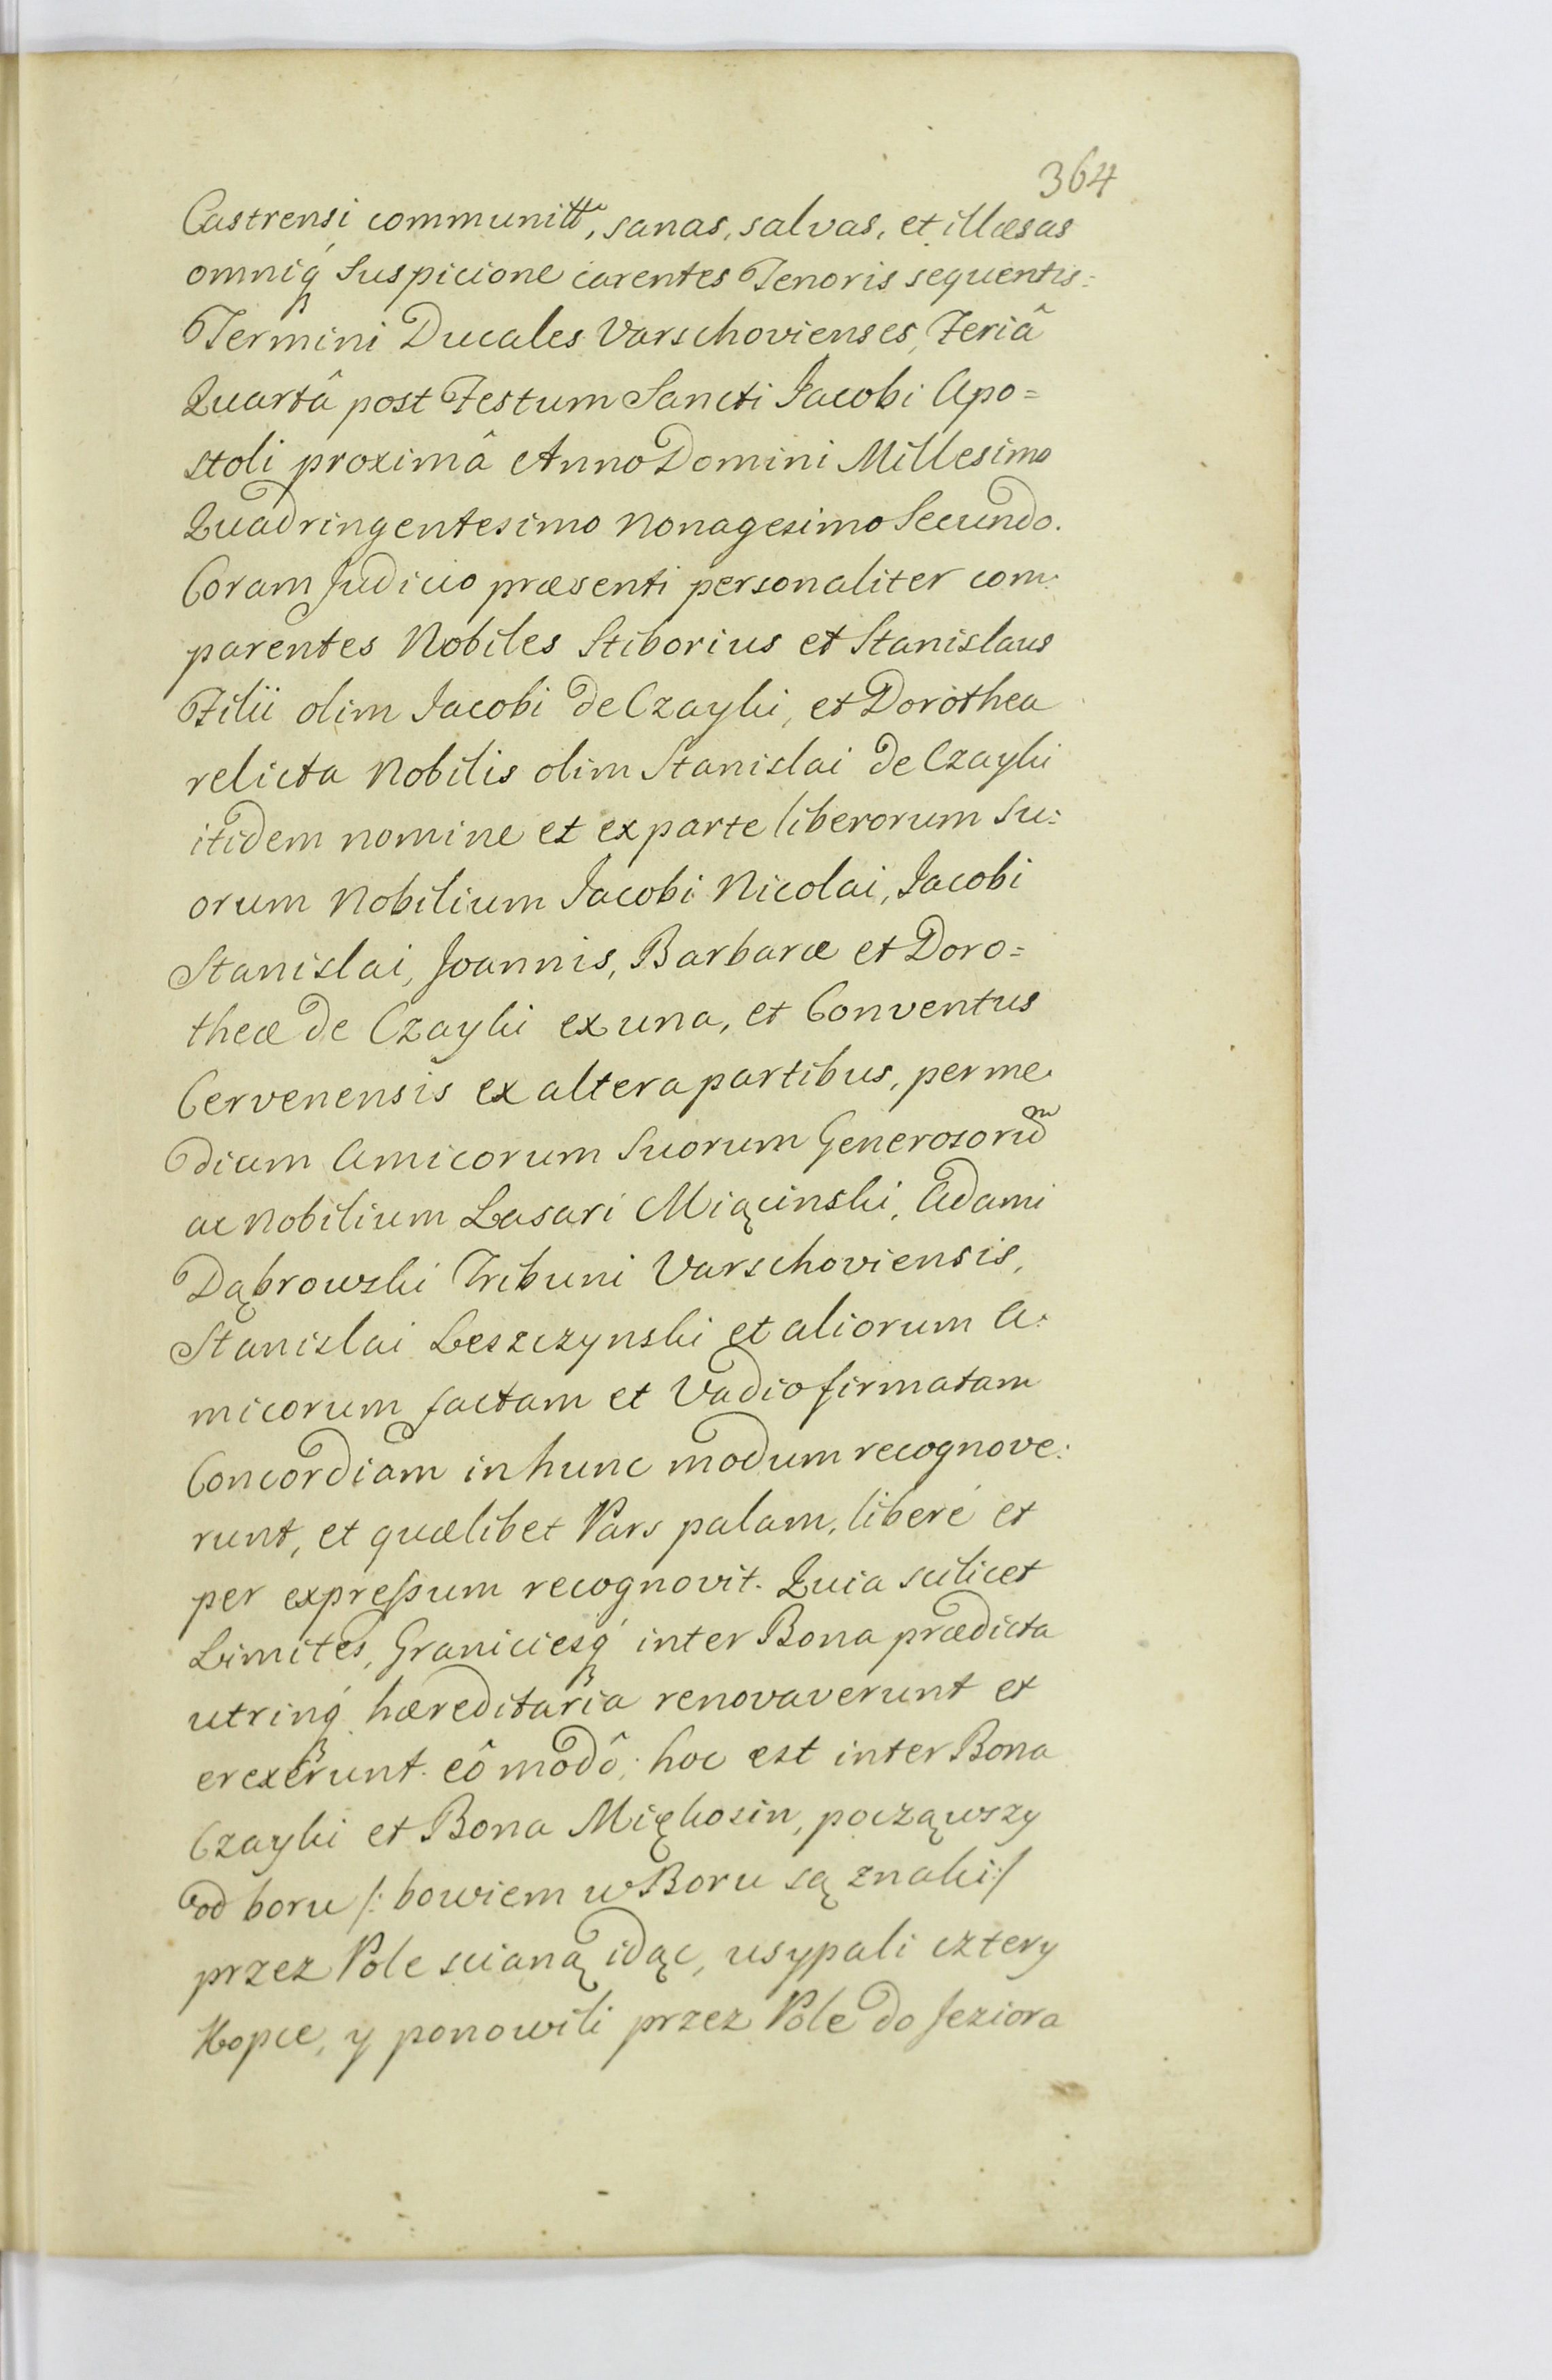 364
Castrensi communitte, sanas, salvas, et illæsas
omniq́ Suspicione carentes Tenoris sequentis:
Termini Ducales Varschovienses, Feriâ
Quartâ post Festum Sancti Jacobi Apo=
stoli proximâ Anno Domini Millesimo
Quadringentesimo Nonagesimo Secundo.
Coram Judicio præsenti personaliter com:
parentes Nobiles Stiborius et Stanislaus
Filii olim Jacobi de Czayki, et Dorothea
relicta Nobilis olim Stanislai de Czayki
itidem nomine et ex parte liberorum su:
orum Nobilium Jacobi Nicolai, Jacobi
Stanislai, Joannis, Barbaræ et Doro=
theæ de Czayki ex una, et Conventus
Cervenensis ex altera partibus, per me:
dium Amicorum Suorum Generosorum
ac Nobilium Lasari Miącinski, Adami
Dąbrowski Tribuni Varschoviensis,
Stanislai Leszczynski et aliorum A:
micorum factam et Vadio firmatam
Concordiam in hunc modum recognove:
runt, et quælibet Pars palam, liberé et
per expreſsum recognovit. Quia scilicet
Limites, Graniciesq́ inter Bona prædicta
utrinq́ hæreditaria renovaverunt et
erexerunt. eô modô; hoc est inter Bona
Czayki et Bona Miękosin, począwszy
od boru /: bowiem w Boru są znaki:/
przez Pole scianą idąc, usypali cztery
Kopce, y ponowili przez Pole do Jeziora